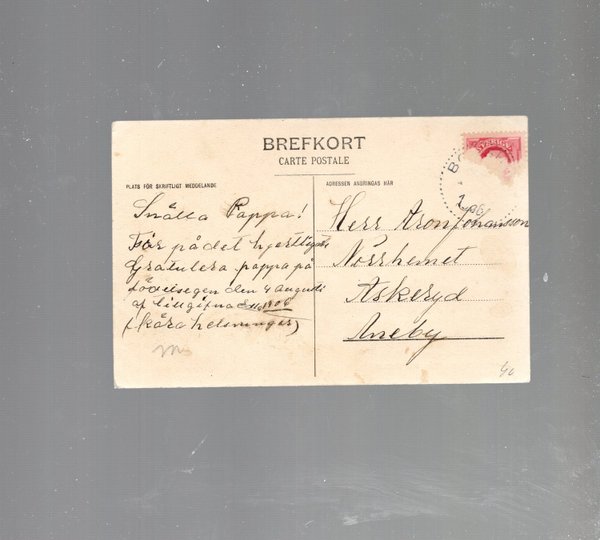 BREFKORT
CARTE POSTALE
PLATS FÖR SKRIFTLIGT MEDDELANDE
Snälla Pappa!
Får på det hjertligaste
Gratulera pappa på
födelsegen den 4 augusti
af tillgifna
1906
(Kära helsningar)
ADRESSEN ANBRINGAS HÄR
Herr Aron Johansson
Norrhemet
Askeryd
Aneby
SVERIGE
BO